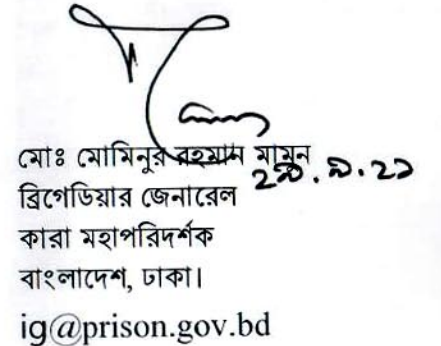 মোঃ মোমিনুর রহমান মামুন
২৯.৯.২১
ব্রিগেডিয়ার জেনারেল
কারা মহাপরিদর্শক
বাংলাদেশ, ঢাকা।
ig@prison.gov.bd